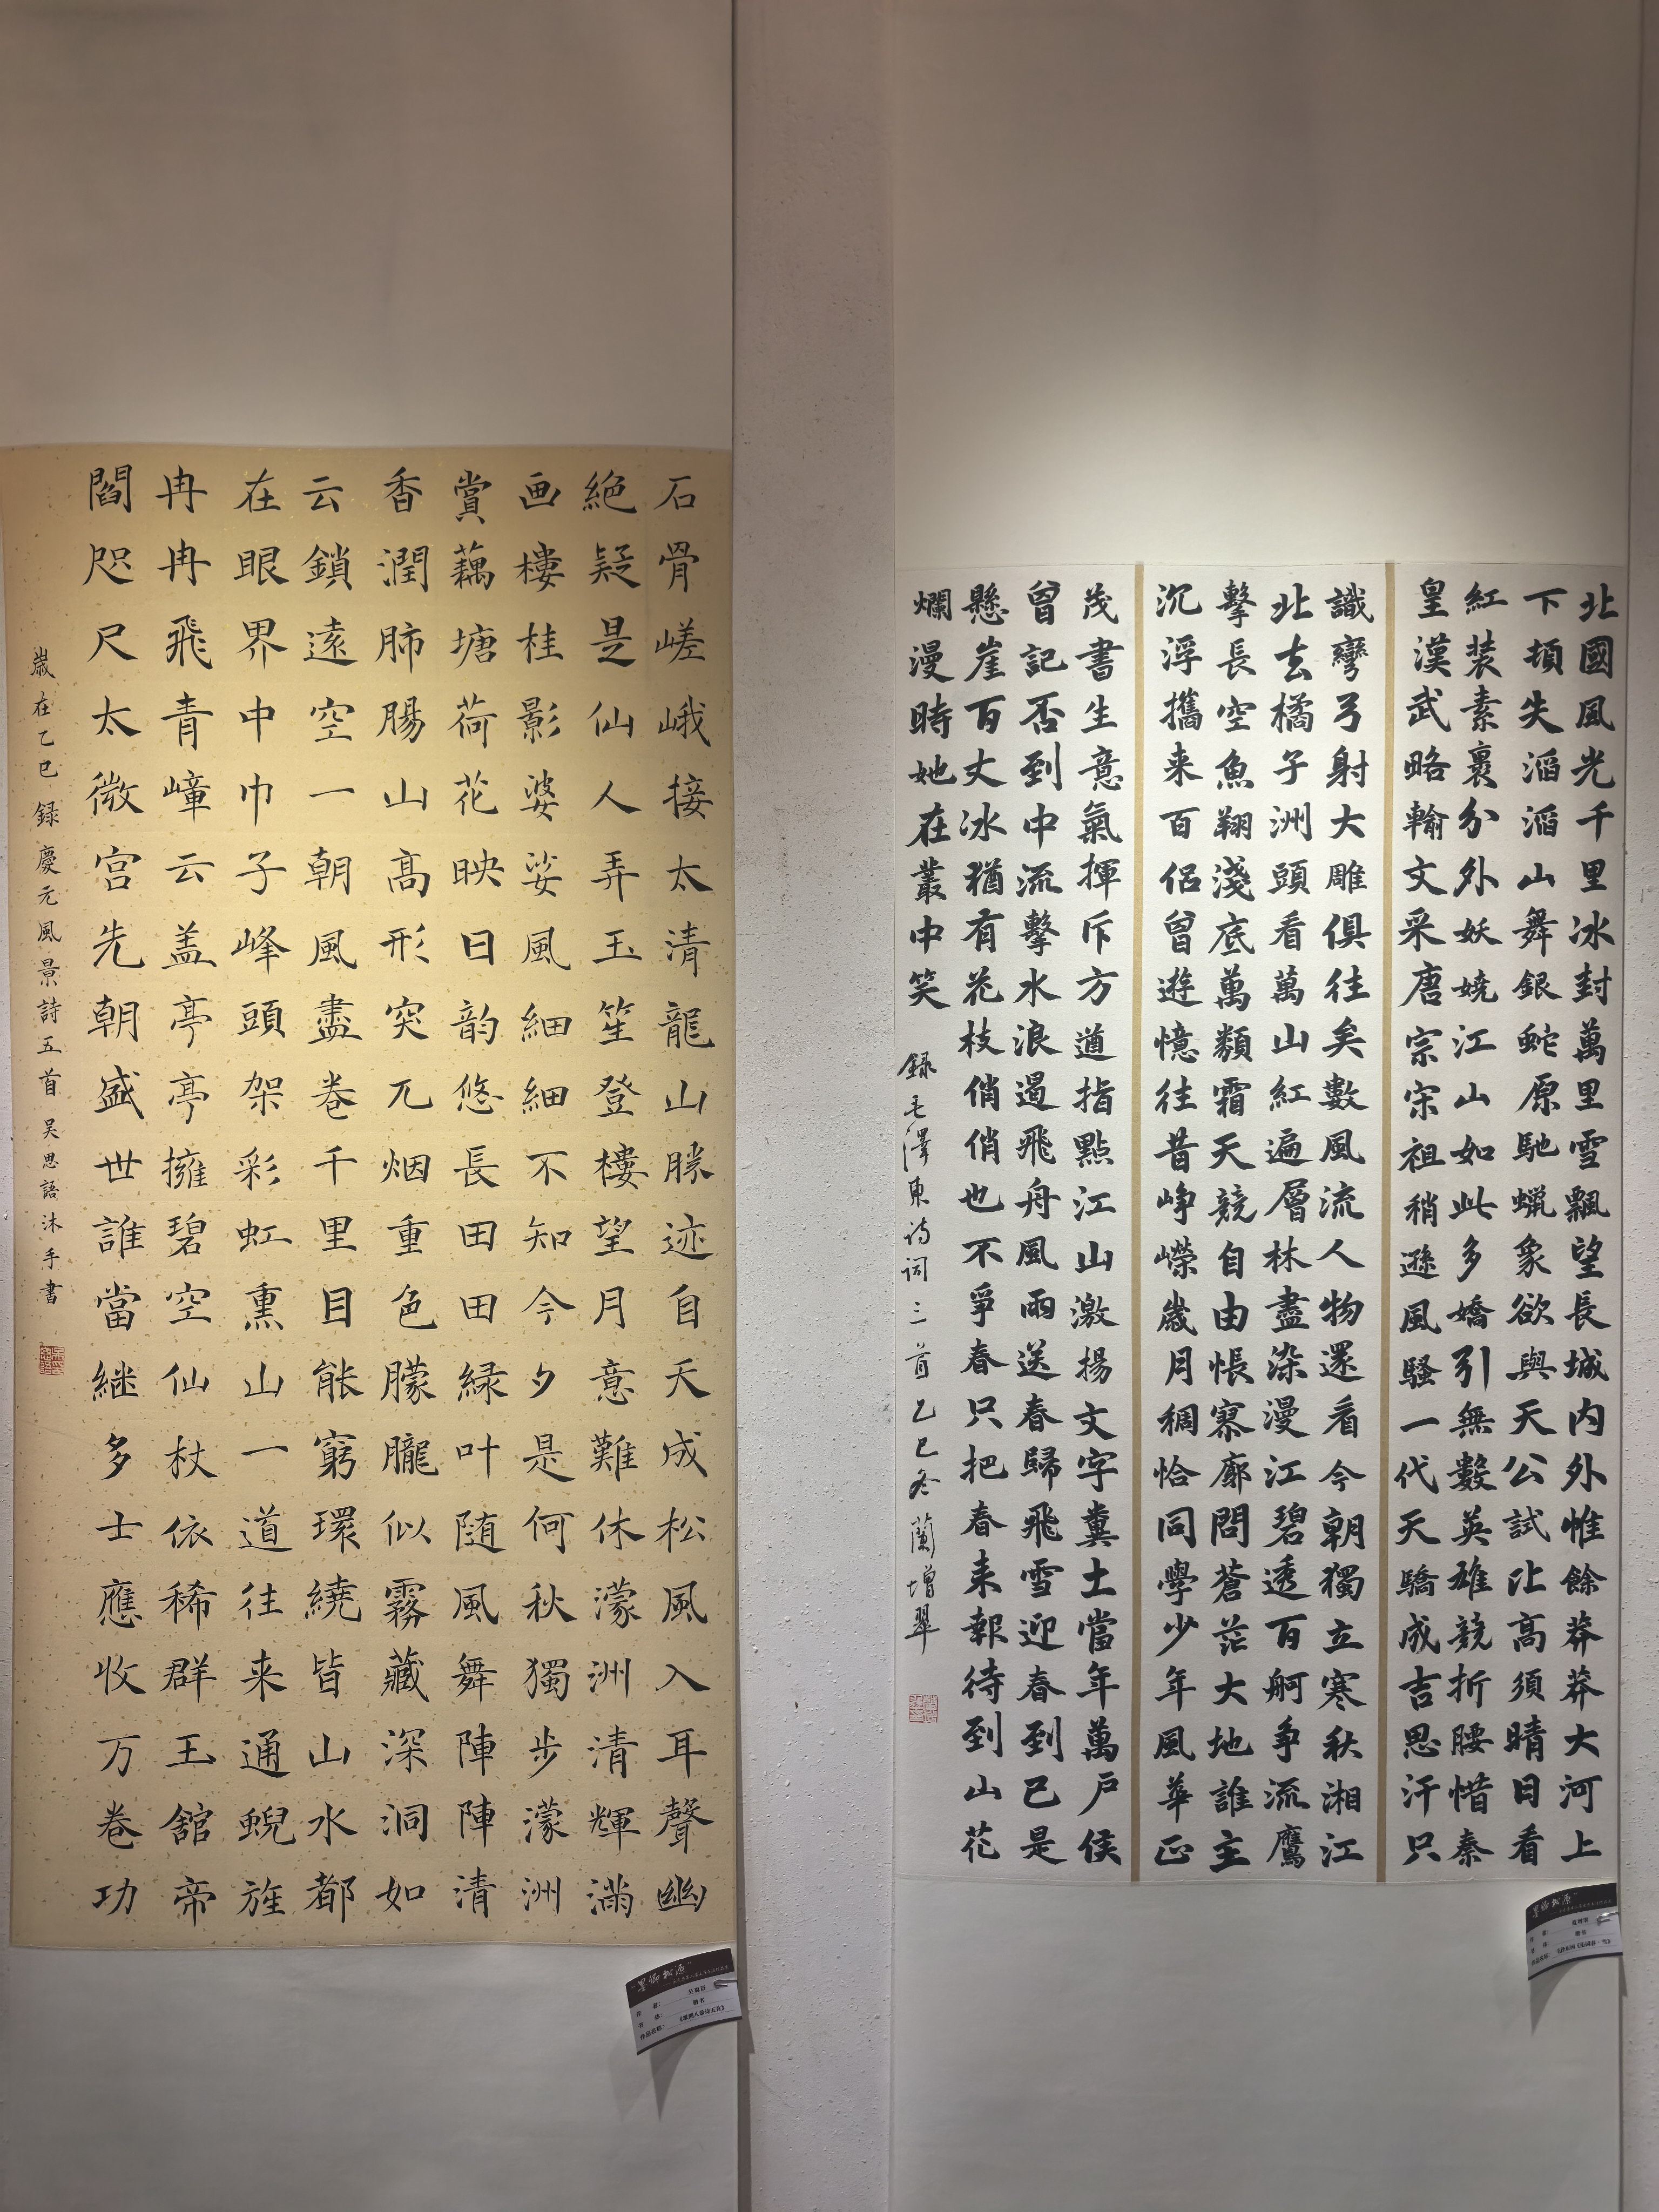 北國風光千里冰封萬里雪飄望長城内外惟餘莽莽大河上
下頓失滔滔山舞銀蛇原馳蠟象欲與天公試比高須晴日看
紅装素裹分外妖娆江山如此多嬌引無數英雄競折腰惜秦
皇漢武略輸文采唐宗宋祖稍遜風騷一代天驕成吉思汗只
識彎弓射大雕俱往矣數風流人物還看今朝獨立寒秋湘江
北去橘子洲頭看萬山紅遍層林盡染漫江碧透百舸争流鷹
擊長空魚翔淺底萬類霜天競自由悵寥廓問蒼茫大地誰主
沉浮攜来百侣曾遊憶往昔峥嵘歲月稠恰同學少年風華正
茂書生意氣揮斥方遒指點江山激揚文字糞土當年萬户侯
曾記否到中流擊水浪遏飛舟風雨送春歸飛雪迎春到已是
懸崖百丈冰猶有花枝俏俏也不爭春只把春来報待到山花
爛漫時她在叢中笑
録毛澤東诗词三首乙巳冬蘭增翠
石骨嵯峨接太清龍山勝迹自天成松風入耳聲幽
絶疑是仙人弄玉笙登樓望月意難休濛洲清輝滿
画樓桂影婆娑風細細不知今夕是何秋獨步濛洲
賞藕塘荷花映日韵悠長田田緑叶随風舞陣陣清
香潤肺腸山高形突兀烟重色朦朧似霧藏深洞如
云鎖遠空一朝風盡卷千里目能窮環繞皆山水都
在眼界中巾子峰頭架彩虹熏山一道往来通蜺旌
冉冉飛青嶂云盖亭亭擁碧空仙杖依稀群玉館帝
閻咫尺太微宫先朝盛世誰當継多士應收万卷功
歲在乙巳録慶元風景詩五首吴思語沐手書
"墨鄉松源"
作 者：
书 体： 楷书
作品名称：
"墨鄉松源"
作 者：
书 体： 楷书
作品名称：